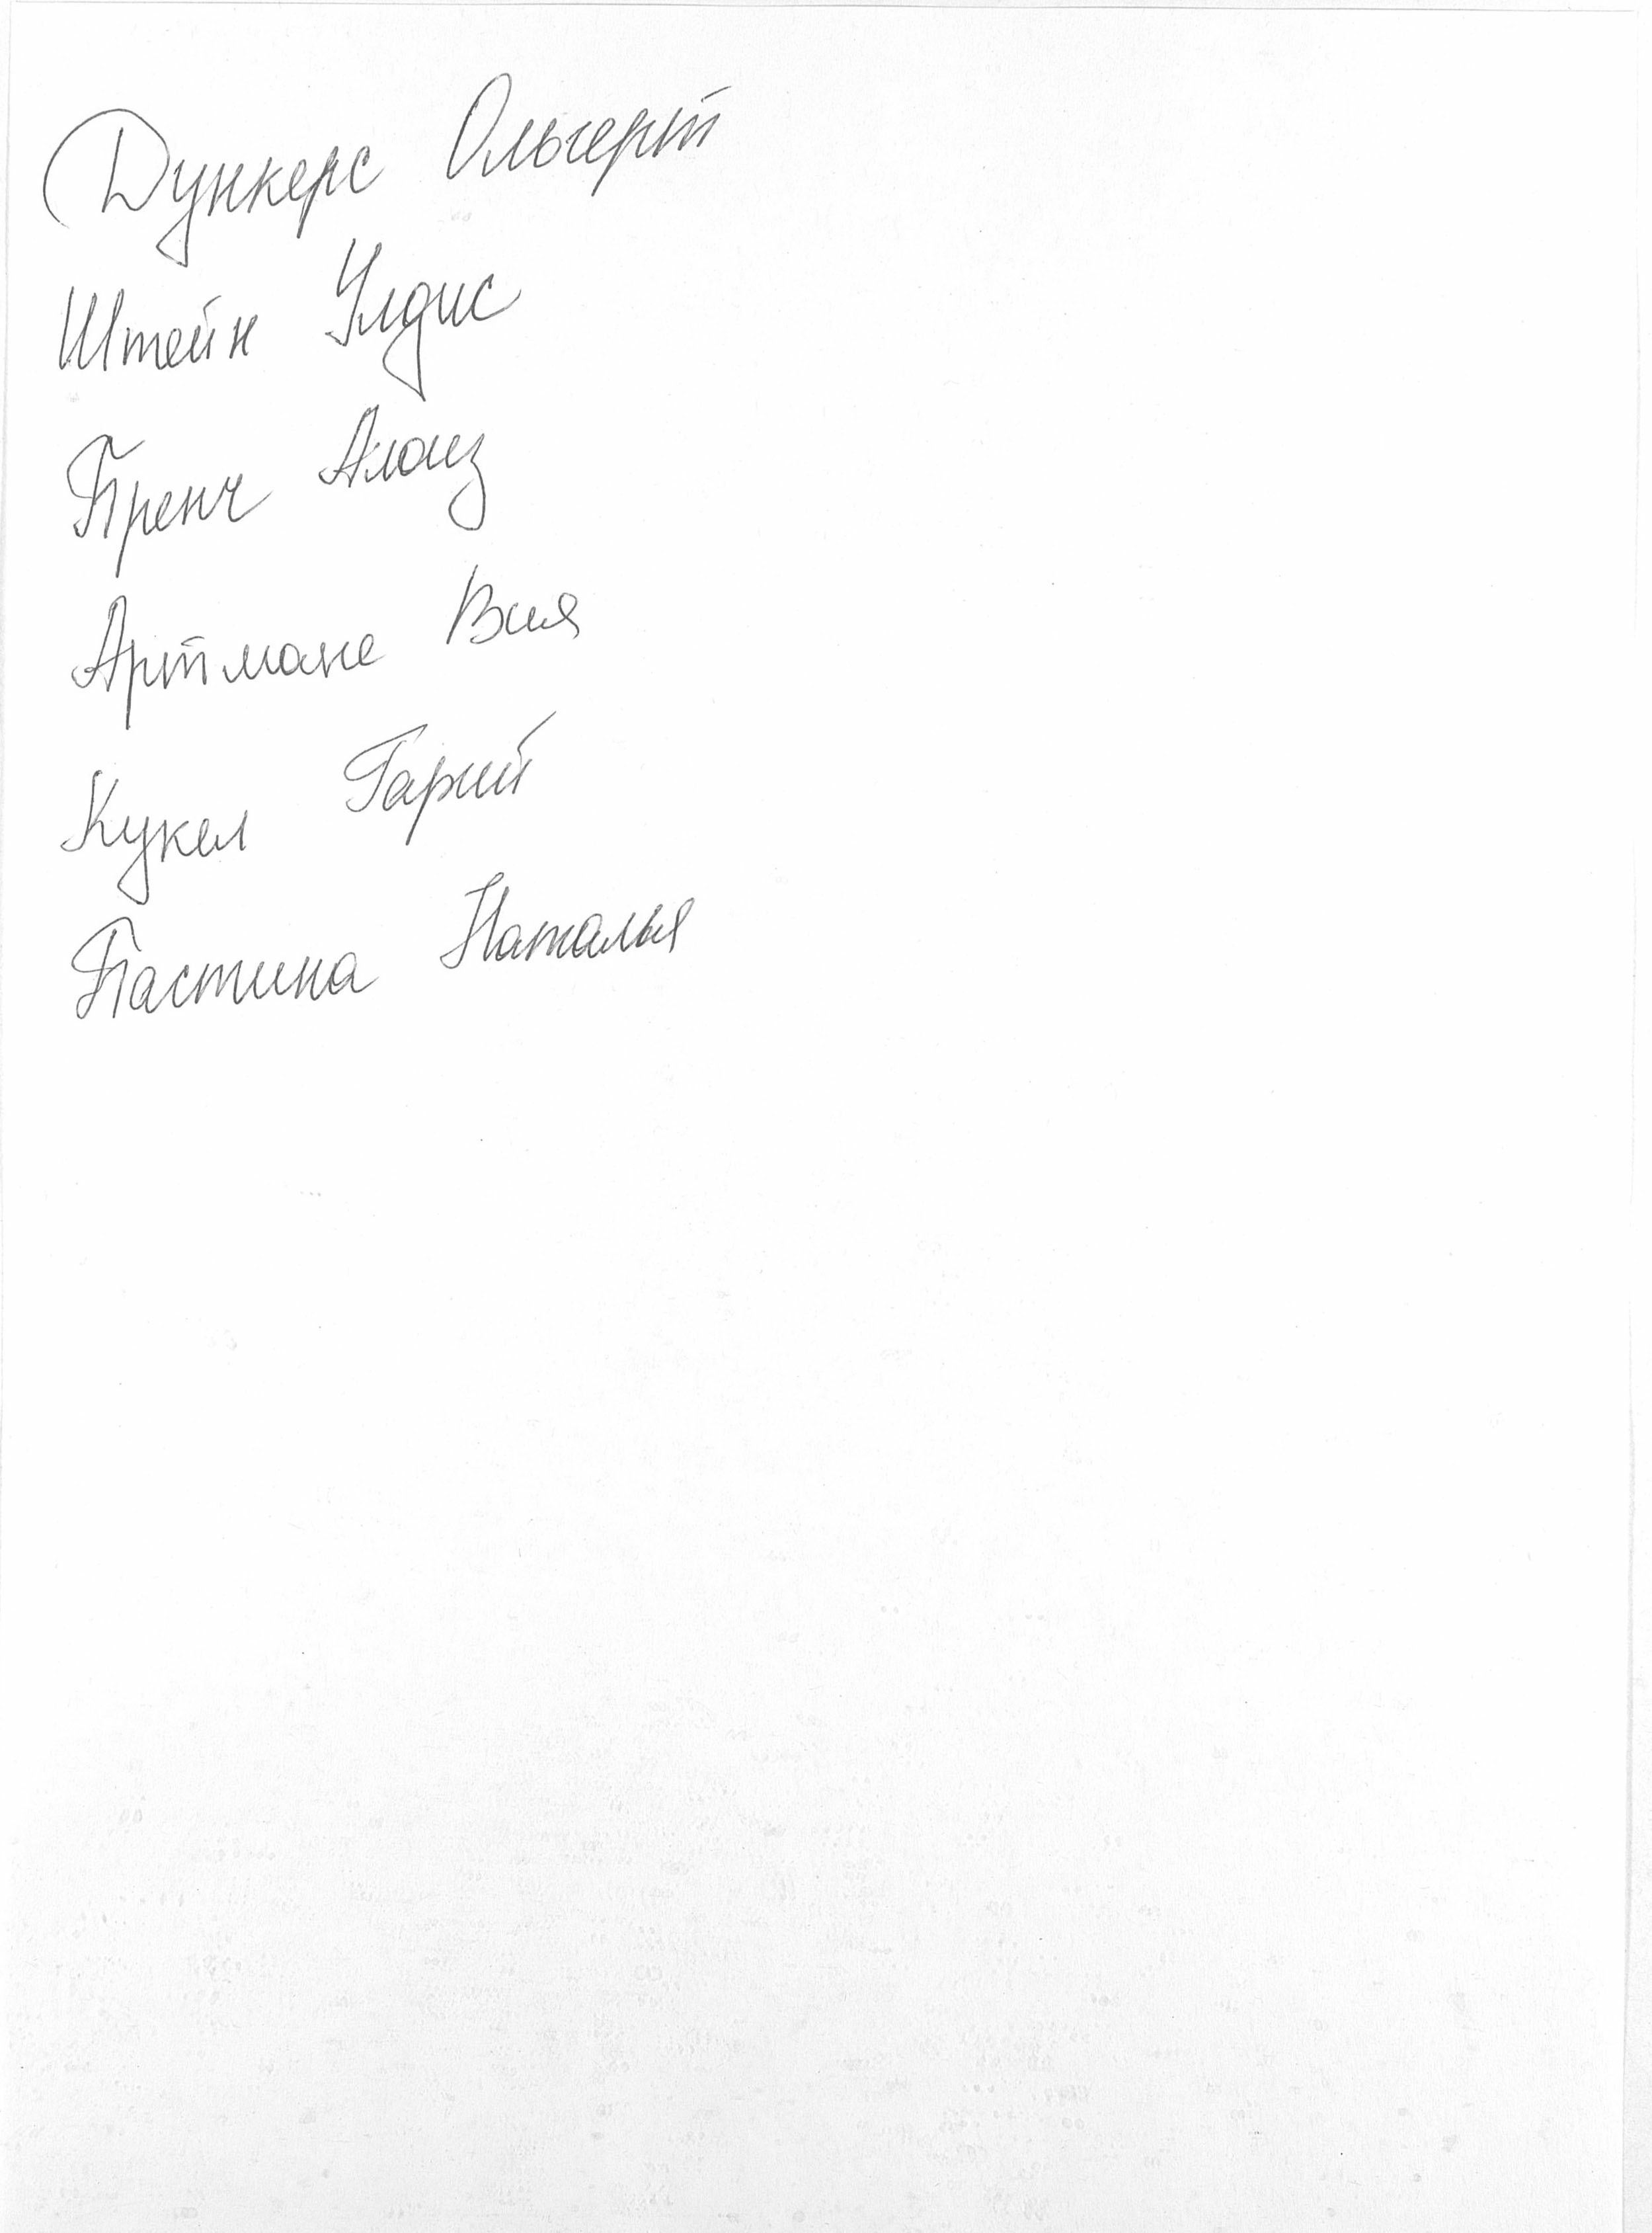 Дункерс Ольгерт
Штейн Улдис
Бренч Алоиз
Артмане Вия
Кукел Гарий
Пастина Наталья